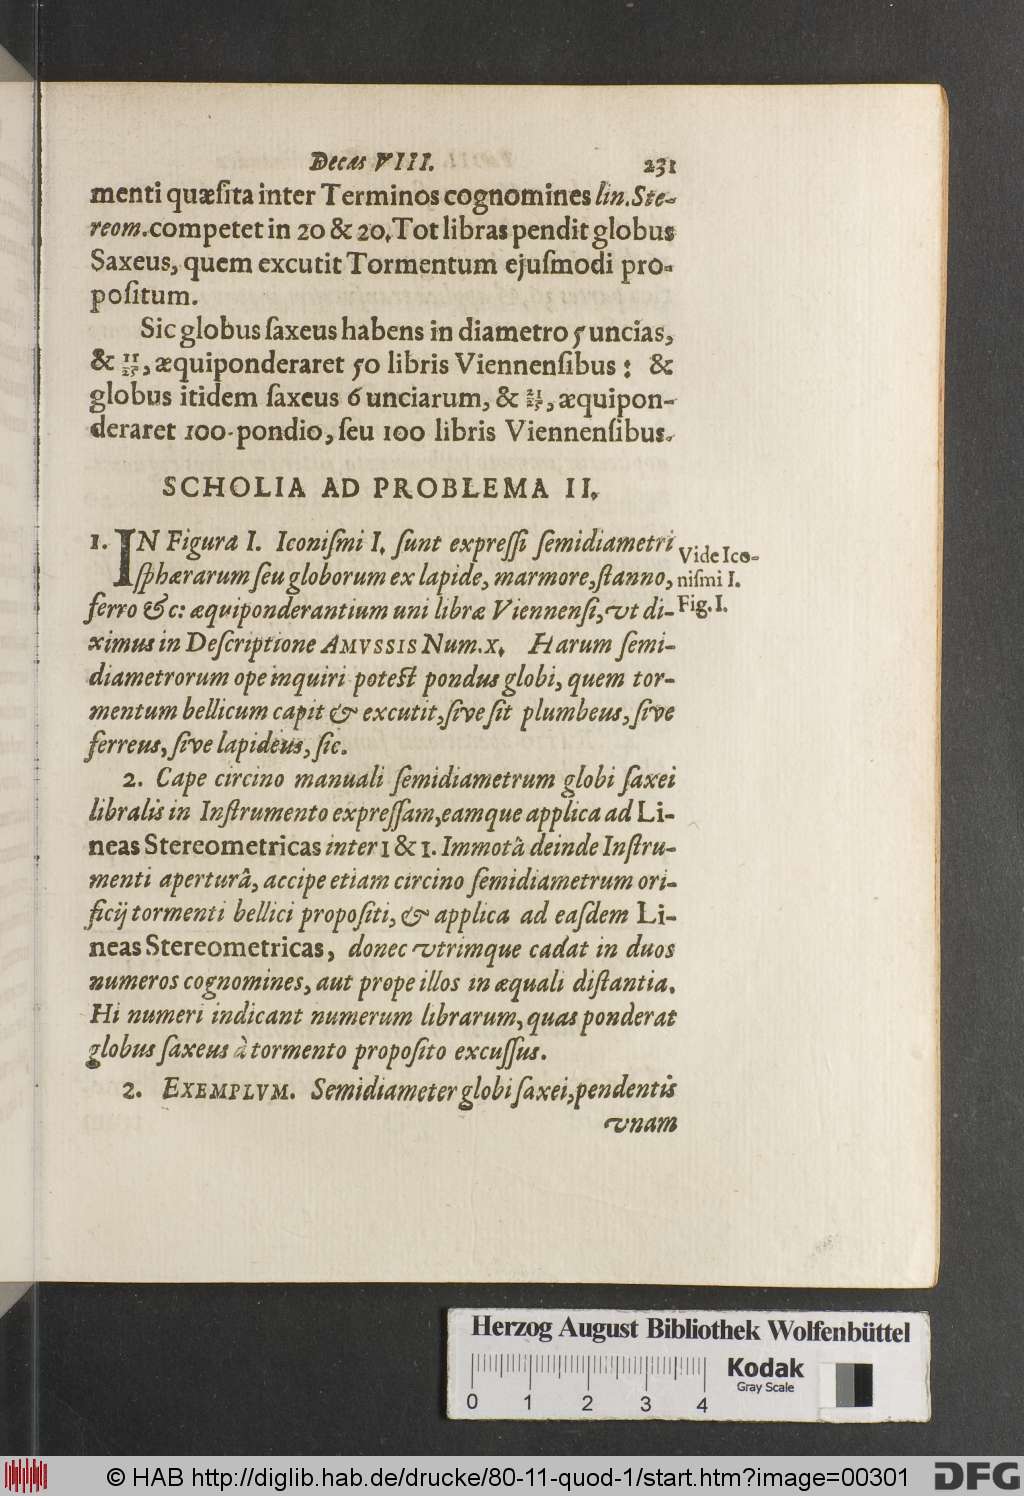 Decas VIII. 231
menti quæſita inter Terminos cognomines lin. Ste-
reom. competet in 20 & 20. Tot libras pendit globus
Saxeus, quem excutit Tormentum ejuſmodi pro-
poſitum.
Sic globus ſaxeus habens in diametro 5 uncias,
& 11/25, æquiponderaret 50 libris Viennenſibus: &
globus itidem ſaxeus 6 unciarum, & 21/25, æquipon-
deraret 100-pondio, ſeu 100 libris Viennenſibus.
SCHOLIA AD PROBLEMA II.
1. IN Figura I. Iconiſmi I. ſunt expreſſi ſemidiametri
ſphærarum ſeu globorum ex lapide, marmore, ſtanno,
ferro &c: æquiponderantium uni libræ Viennenſi, vt di-
ximus in Deſcriptione AMVSSIS Num. X. Harum ſemi-
diametrorum ope inquiri poteſt pondus globi, quem tor-
mentum bellicum capit & excutit, ſive ſit plumbeus, ſive
ferreus, ſive lapideus, ſic.
Vide Ico-
niſmi I.
Fig. I.
2. Cape circino manuali ſemidiametrum globi ſaxei
libralis in Inſtrumento expreſſam, eamque applica ad Li-
neas Stereometricas inter 1 & 1. Immotâ deinde Inſtru-
menti aperturâ, accipe etiam circino ſemidiametrum ori-
ficij tormenti bellici propoſiti, & applica ad eaſdem Li-
neas Stereometricas, donec vtrimque cadat in duos
numeros cognomines, aut prope illos in æquali diſtantia.
Hi numeri indicant numerum librarum, quas ponderat
globus ſaxeus à tormento propoſito excuſſus.
2. EXEMPLVM. Semidiameter globi ſaxei, pendentis
vnam
Herzog August Bibliothek Wolfenbüttel
0 1 2 3 4
Kodak
Gray Scale
© HAB http://diglib.hab.de/drucke/80-11-quod-1/start.htm?image=00301
DFG